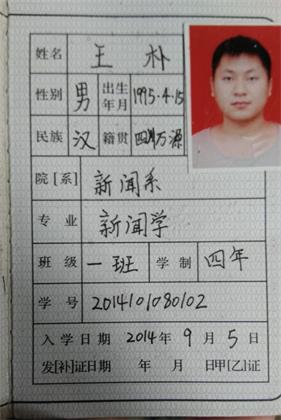 姓名 王朴
性别 男 出生年月 1995.4.15
民族 汉 籍贯 四川万源
院[系] 新闻系
专业 新闻学
班级 一班 学制 四年
学号 2014101080102
入学日期 2014年9月5日
发[补]证日期 年 月 日甲[乙]证